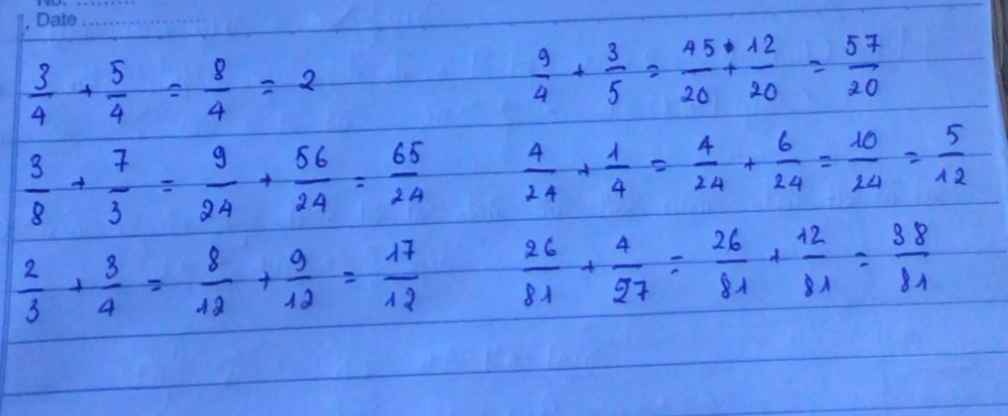 No. ..........
Date ....................
3/4 + 5/4 = 8/4 = 2
9/4 + 3/5 = 45/20 + 12/20 = 57/20
3/8 + 7/3 = 9/24 + 56/24 = 65/24
4/24 + 1/4 = 4/24 + 6/24 = 10/24 = 5/12
2/3 + 3/4 = 8/12 + 9/12 = 17/12
26/81 + 4/27 = 26/81 + 12/81 = 38/81